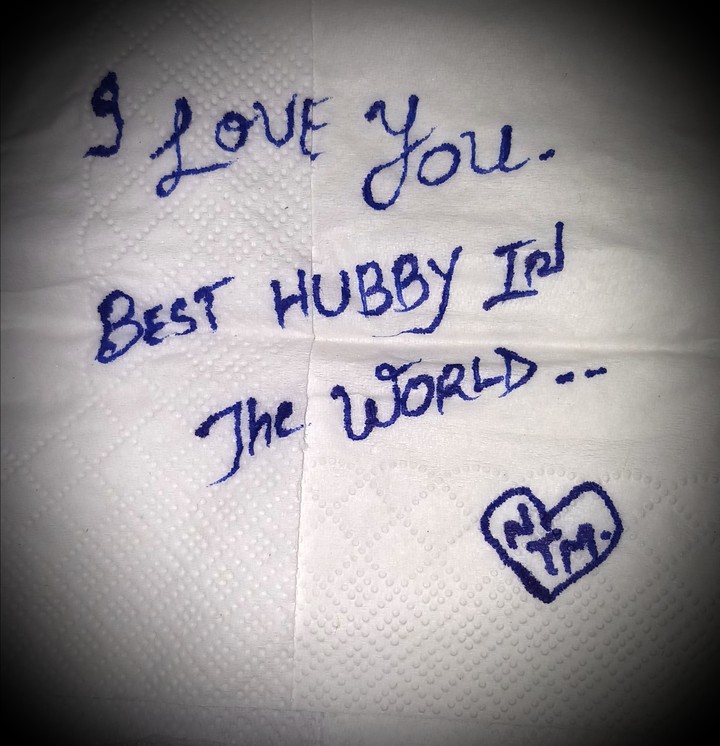 I LOVE YOU.
BEST HUBBY IN
The WORLD...
N
TM.